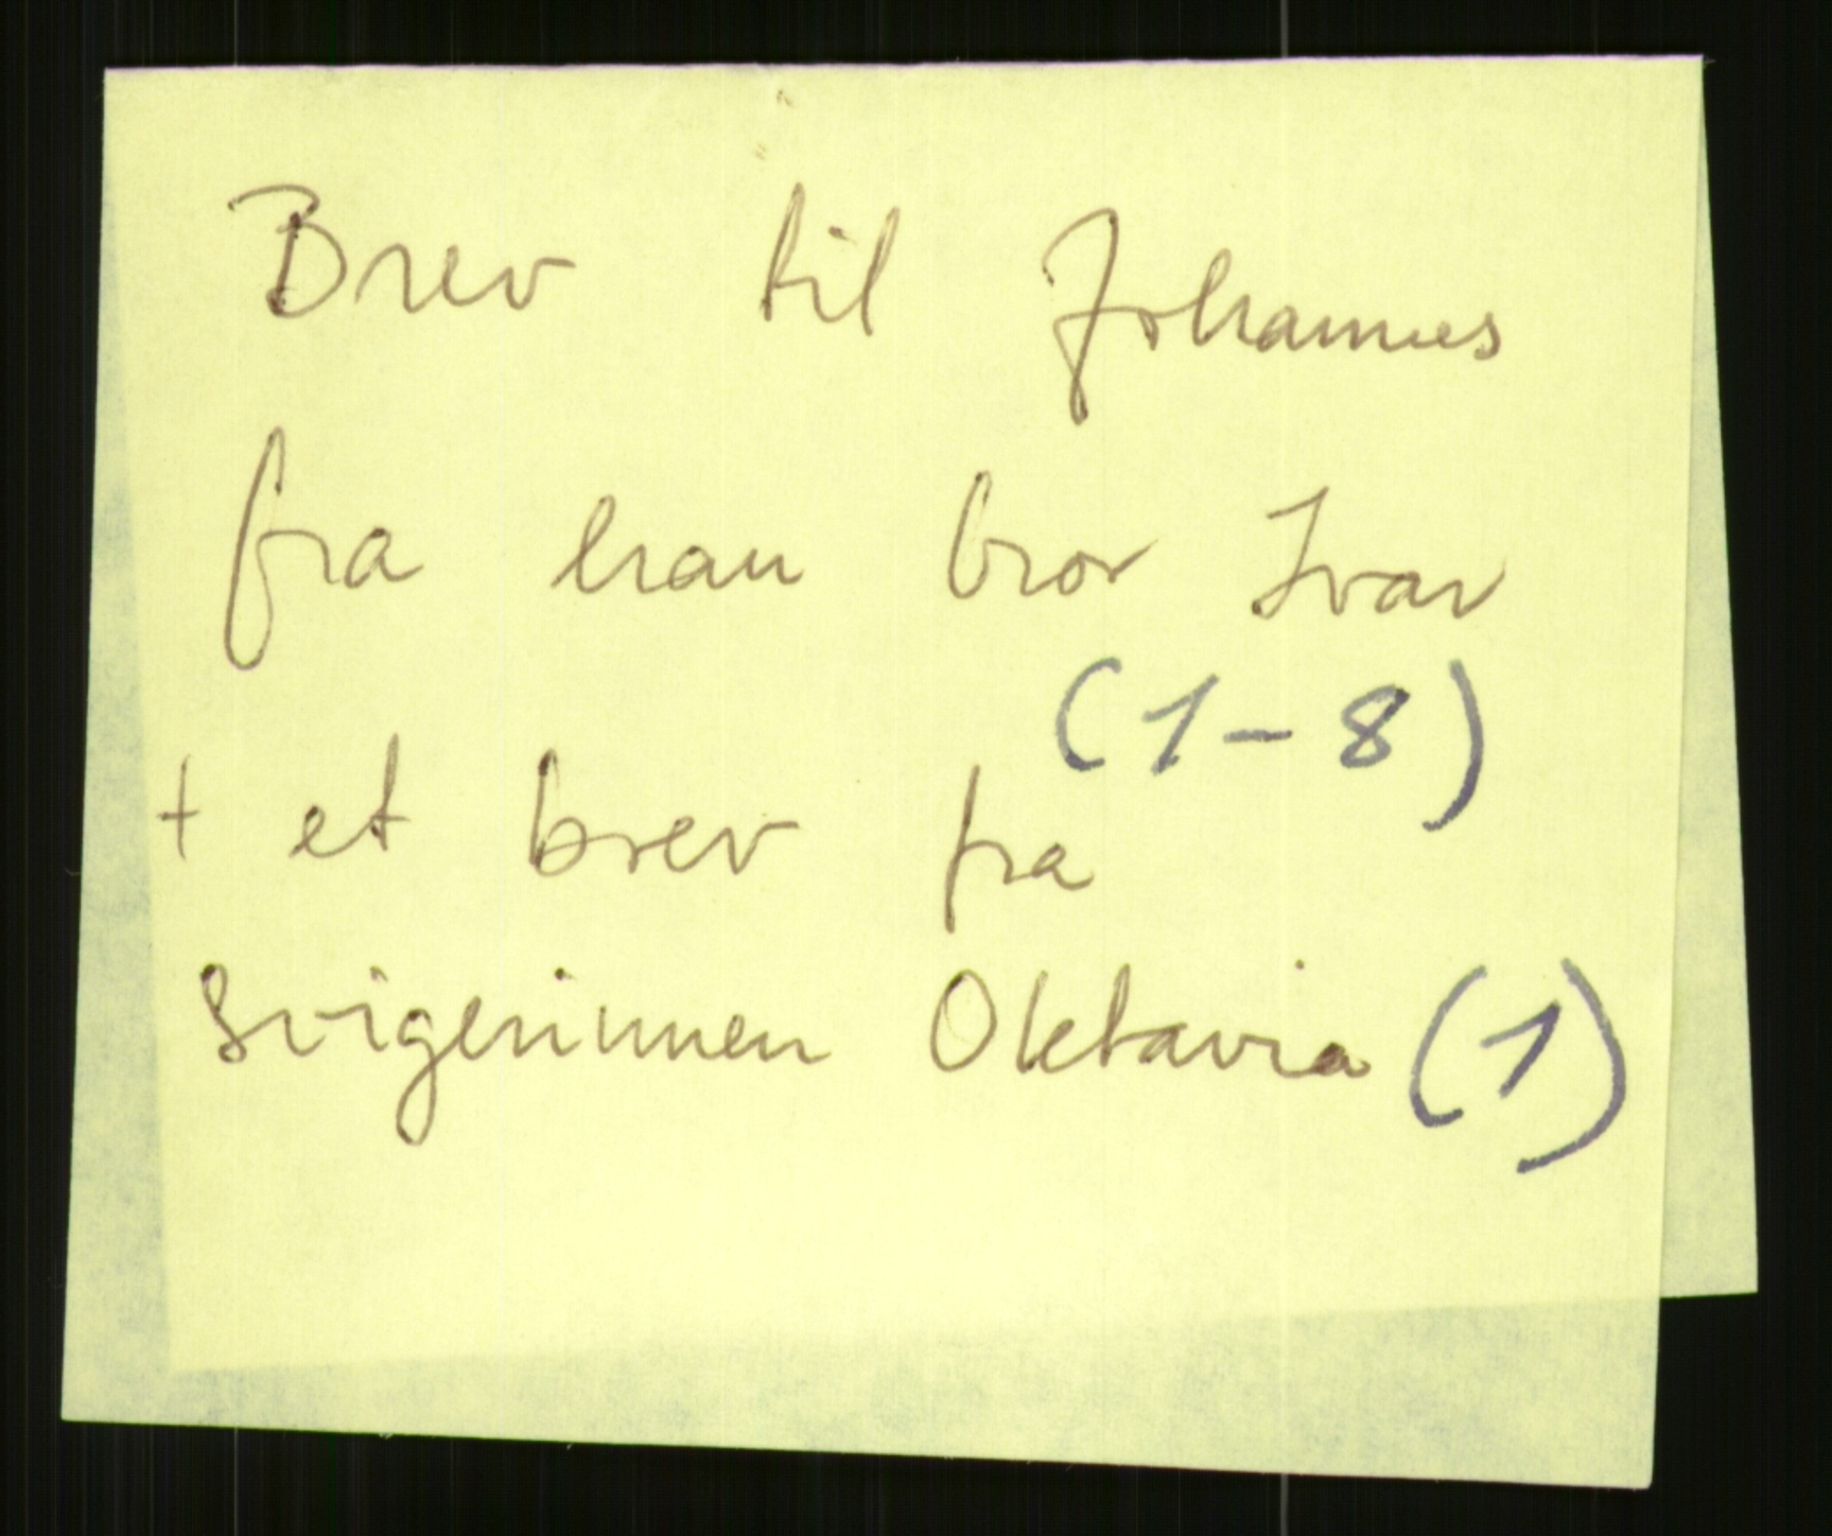 Brev til Johannes
fra hau bror Ivar
(1-8)
+ et brev fra
Svigerinnen Oktavia (1)